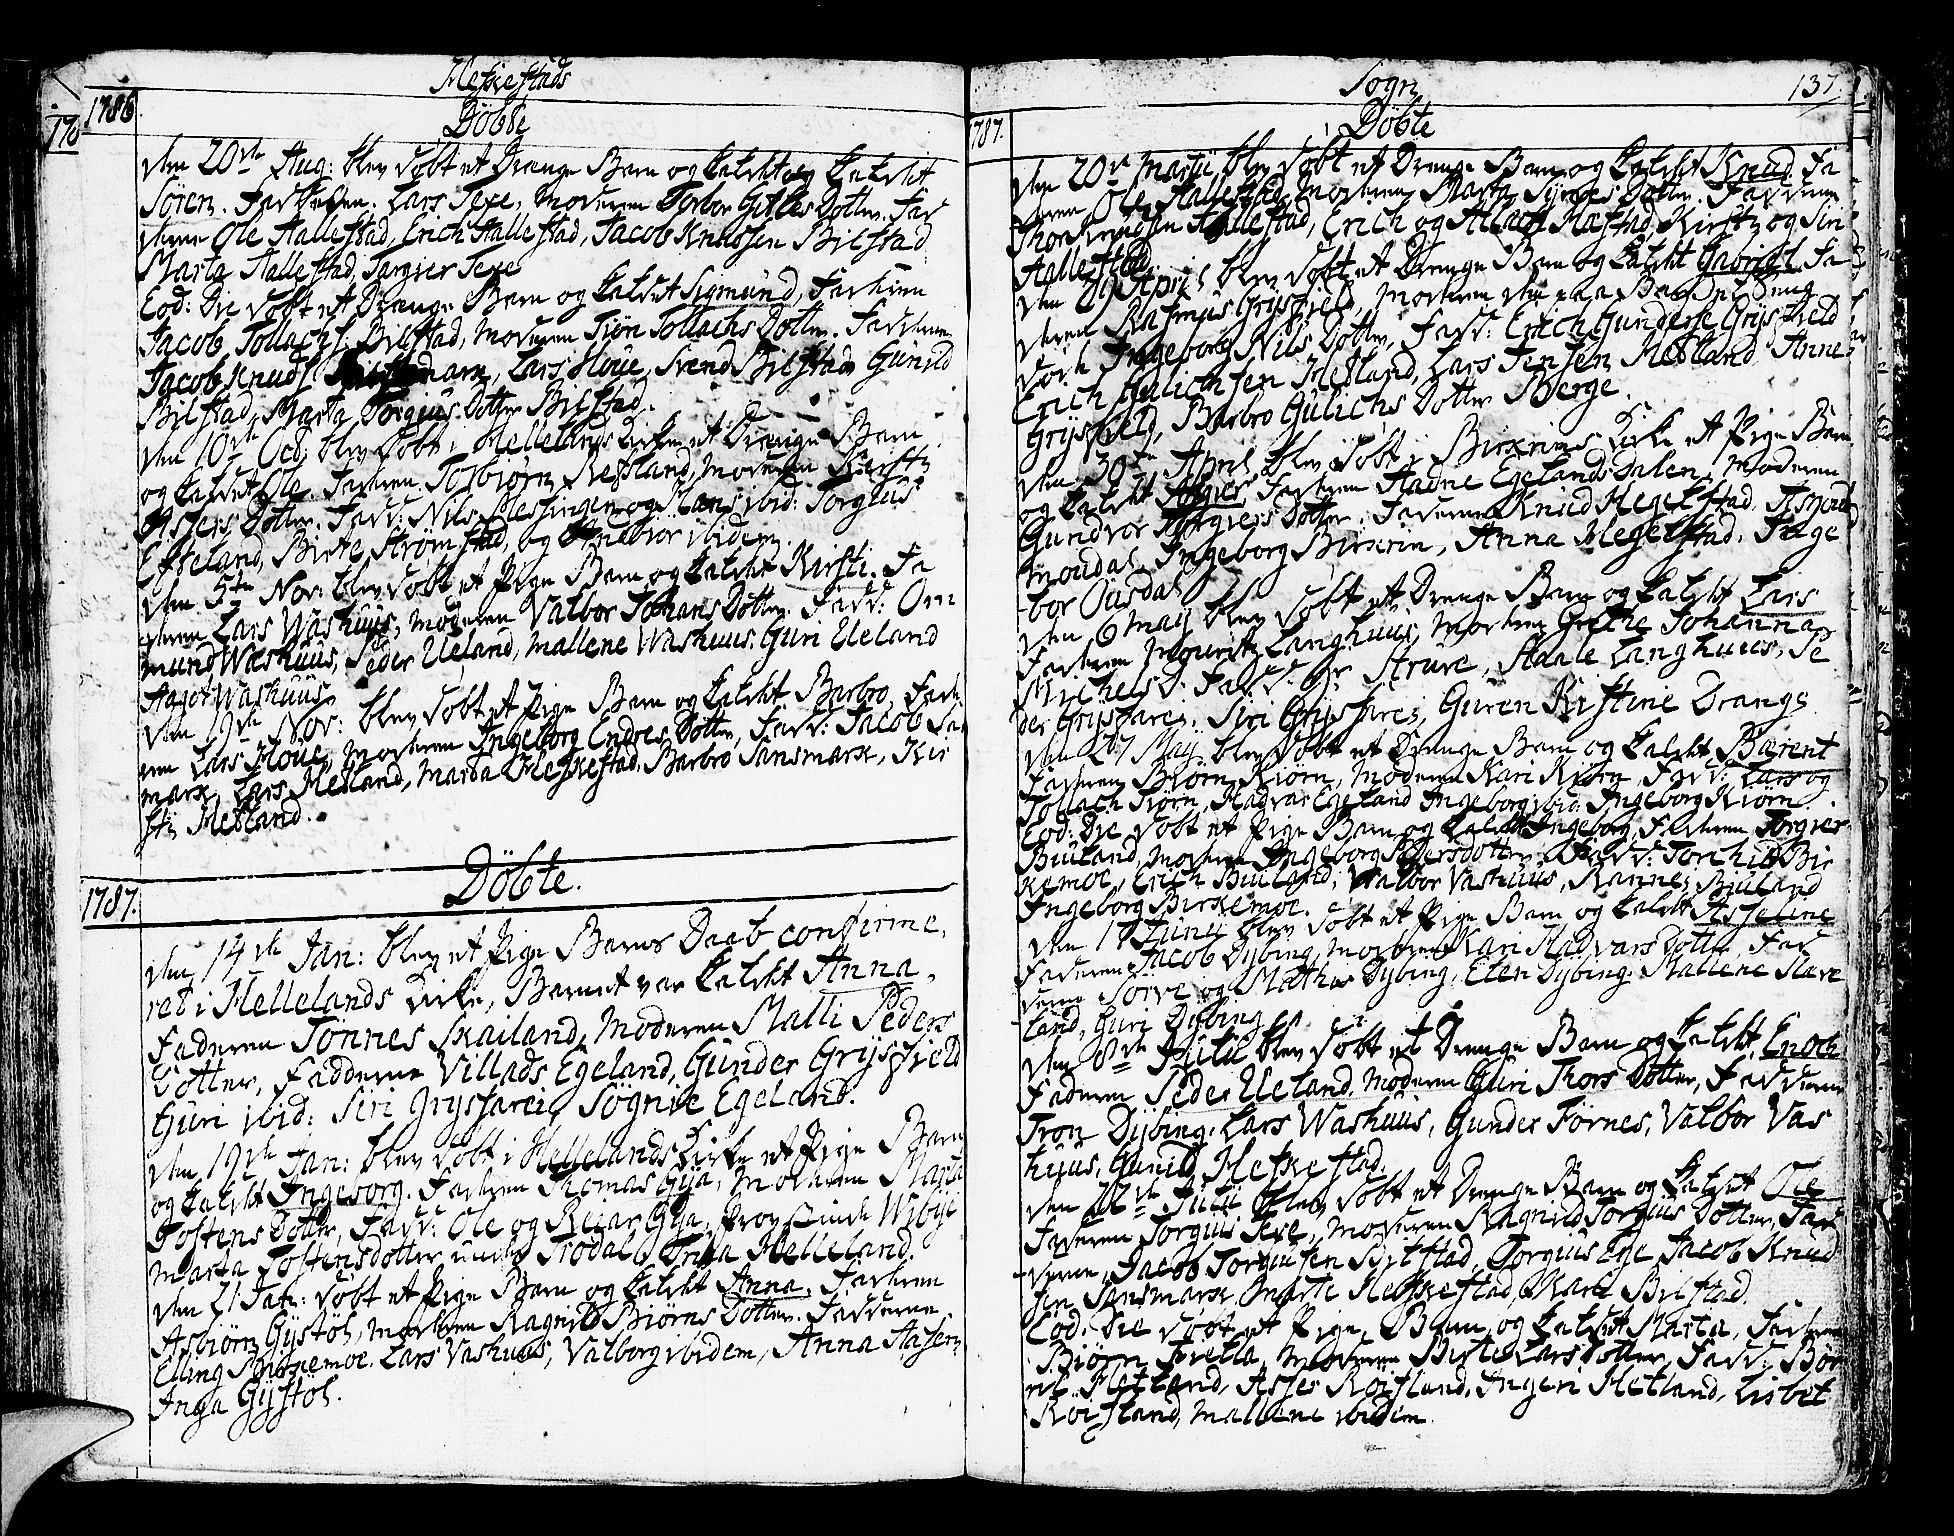 Heskestads
1786.
Döbte
den 20de Aug: blev döbt et Drenge Barn og kaldet
Sören. Faderen. Lars Texe, Moderen Torbor Gitles Dotter. Fad
derne Ole Hallestad, Erich Hallestad, Jacob Knudsen Bilstad
Marta Hallestad, Targier Texe
Eod: Die döbt et Drenge Barn og kaldet Sigmund, Faderen
Jacob Tollachs: Bilstad, Moderen Siön Tollachs Dotter. Fadderne
Jacob Knuds: Lars Houe, Svend Bilstad Gunild
Bilstad, Marta Torgius Dotter Bilstad.
den 10de Oct: blev döbt i Hellelands Kirke et Drenge Barn
og kaldet Ole. Faderen Torbiörn Refsland, Moderen Kirsti
Assers Dotter. Fadd: Nils Messingen og Hans ibid: Torgius
Efteland, Birte Strömstad, og ibidem.
den 5te Nov: blev döbt et Pige Barn og kaldet Kirsti. Fa
deren Lars Washuus, Moderen Valbor Johans Dotter. Fadd: Om
mund Washuus, Peder Ueland, Mallene Washuus. Guri Ueland
Aasot Washuus
den 19de Nov: blev döbt et Pige Barn og kaldet Barbro, Fade
ren Lars Houe, Moderen Ingeborg Endres Dotter, Fadd: Jacob San
mark, Lars Hetland, Marta Heskestad, Barbro Sansmark, Kir
sti Hetland.
1787.
Döbte.
den 14de Jan: blev et Pige Barns Daab confirme,
ret i Hellelands Kirke, Barnet var kaldet Anna,
Faderen Tönnes Skailand, Moderen Malli Peders
Dotter, Fadderne Villads Egeland, Gunder Grysfield
Guri ibid: Siri Gryssarei, Sögnie Egeland.
den 19de Jan: blev döbt i Hellelands Kirke et Pige Barn
og kaldet Ingeborg. Faderen Thomas Gya, Moderen Marta
Tostens Dotter, Fadd: Ole og Reiar Gya, Wibye
Marta Tostensdotter Trodal Trina Helleland.
den 21 Jan: döbt et Pige Barn og kaldet Anna, Faderen
Asbiörn Gystöl, Moderen Ragnild Biörns Dotter. Fadderne
Elling Birkemoe. Lars Vashuus, Valborg ibidem, Anna Aasen,
Inga Gystöl.
Sogn
137.
1787.
Döbte
den 20de Martii blev döbt et Drenge Barn og kaldet Knud. Fa
deren Ole Hallestad, Moderen Marta Dotter. Fadderne
Thor Knudsen Hallestad, Erich og Hæstad, Kirsti og Sin
Hallestad.
den 29 April blev döbt et Drenge Barn og kaldet Gabriel. Fa
deren Rasmus Grysfield, Moderen
döde Ingeborg Nils Dotter, Fadd: Erich Gunderse Grysfield
Erich Gulichsen Hetland, Lars Jensen Hetland, Anne
Grysfield, Barbro Gulichs Dotter Bierge.
den 30te April blev döbt i Birkrims Kirke et Pige Barn
og kaldet Asgier. Faderen Aadne Egelandsdalen, Moderen
Gundvor Torgiers Dotter. Fadderne Knud Hegelstad, Asmund
Moudal, Ingeborg Birkrim, Anna Hegelstad, Inge
bor Ousdal
den 6 May blev döbt et Drenge Barn og kaldet Lars
Faderen Mouritz Langhuus, Moderen Grethe Johanna
Michels D: Fadd: Hr Strure, Aaale Langhuus, Pe
der Gryssarei, Siri Gryssarei, Guren Kirstine Drangs
den 27 May blev döbt et Drenge Barn og kaldet Bærent
Faderen Biörn Kiörn, Moderen Kari Kiörn, Fadd: Lars og
Tollach Kiörn, Hadvar Egeland Ingeborg ibid: Ingeborg Kiörn.
Eod: Die döbt et Pige Barn og kaldet Ingeborg, Faderen Torgier
Biuland, Moderen Ingeborg Pedersdotter, Fadd: Torchild Bir
kemoe, Erich Biuland, Walbor Vashuus, Rannei Biuland
Ingeborg Birkemoe.
den 17 Junii blev döbt et Pige Barn og kaldet Asseline
Faderen Jacob Dybing, Moderen Kari Hadvars Dotter, Fad
derne Sörve og Mathis Dybing, Elen Dybing, Mallene Slave
land, Guri Dybing
den 8de Julii blev döbt et Drenge Barn og kaldet Enoch
Faderen Peder Ueland, Moderen Guri Thors Dotter, Fadderne
Tron Dybing, Lars Washuus, Gunder Förnes, Valbor Vas
huus, Gunild Heskestad.
den 22de Julii blev döbt et Drenge Barn og kaldet Ole
Faderen Torgius Texe, Moderen Ragnild Torgius Dotter, Fad
derne, Jacob Torgiusen Bilstad, Torgius Ege Jacob Knud
sen Sansmark, Marte Heskestad, Kari Bilstad.
Eod: Die döbt et Pige Barn og kaldet Marta, Faderen
Biörn Frella, Moderen Birte Lars Dotter, Fadd: Bör
ril Hetland, Asses Roisland, Ingeri Hetland, Lisbet
Roisland, Mallene ibidem.